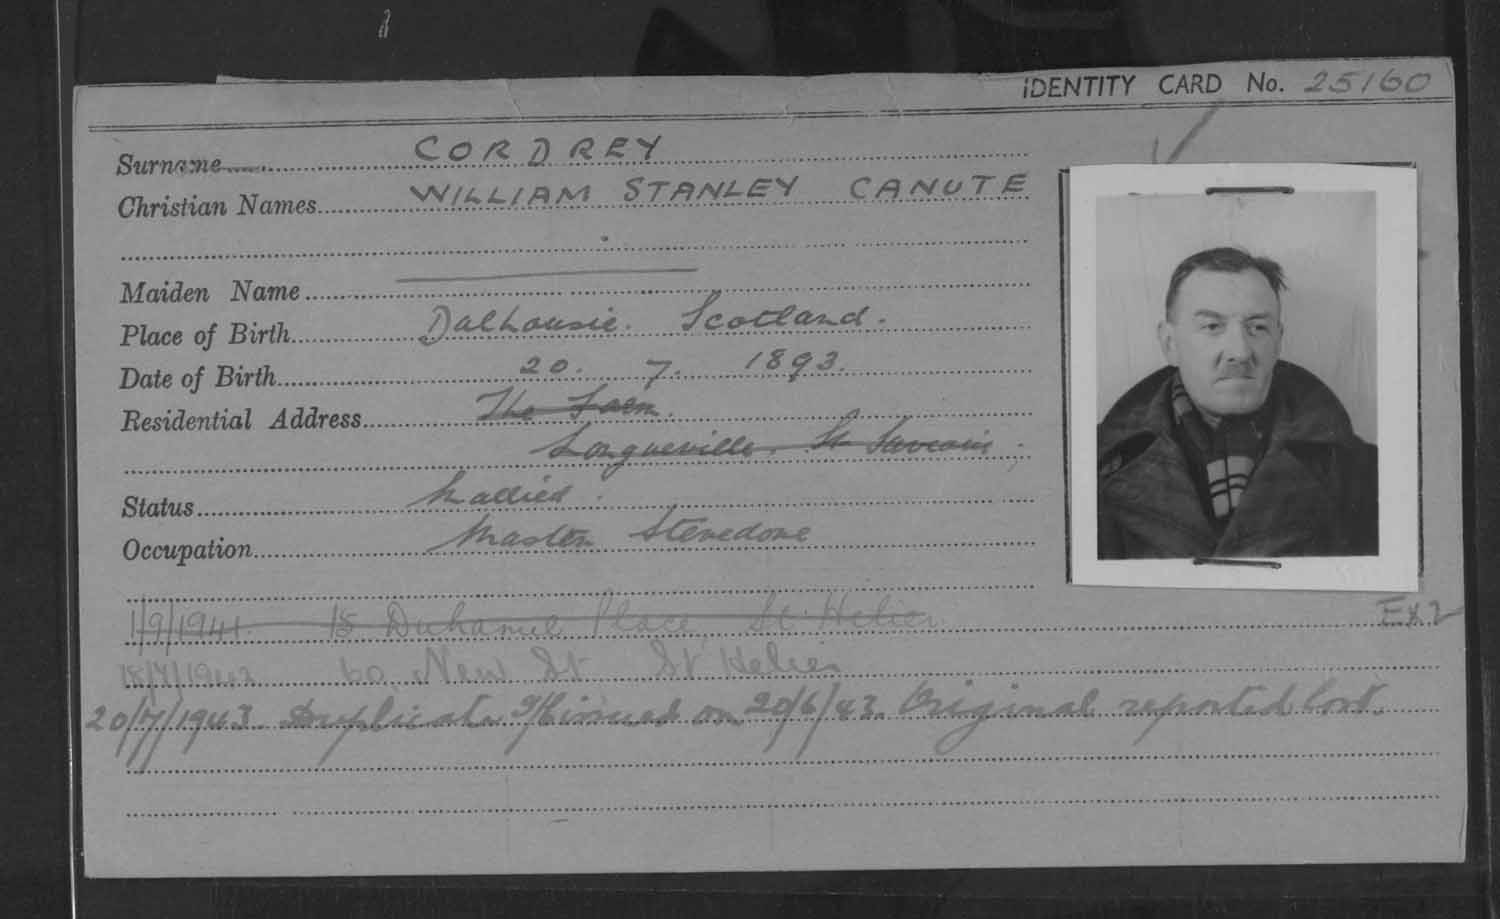 IDENTITY CARD No. 25160
Surname CORDREY
Christian Names WILLIAM STANLEY CANUTE
Maiden Name
Place of Birth Dalhousie. Scotland.
Date of Birth 20. 7. 1893.
Residential Address The
Longueville. St Saviour.
Status Married.
Occupation Master Stevedore
1/9/1941. 15 Duhamel Place, St. Helier. Ex 2
60, New St St Helier
20/7/1943. Duplicate issued on 20/6/43. Original reported lost.